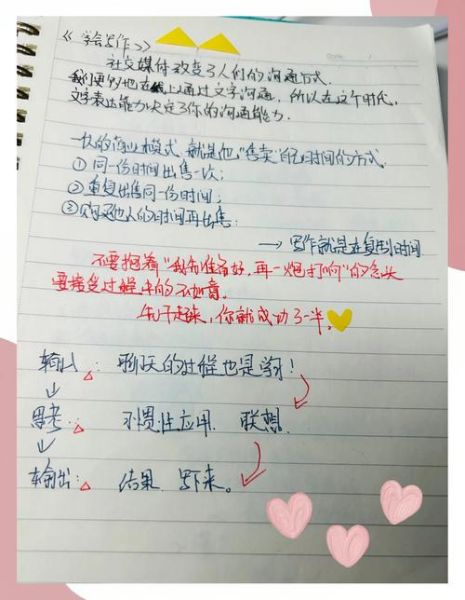 《学会写作》
社交媒体改变了人们的沟通方式.
我们更多地在线上通过文字沟通, 所以在这个时代,
文字表达能力决定了你的沟通能力.
人的商业模式, 就是他"售卖"自己时间的方式.
① 同一份时间出售一次;
② 重复出售同一份时间;
③ 购买他人的时间再出售;
→ 写作就是在复利时间
不要抱着"我先准备好, 再一炮打响"的念头
要接受过程中的不如意。
先干起来, 你就成功了一半。
输入: 聊天的过程也是学习!
思考: 习惯性应用 联想.
输出: 结果 写下来。